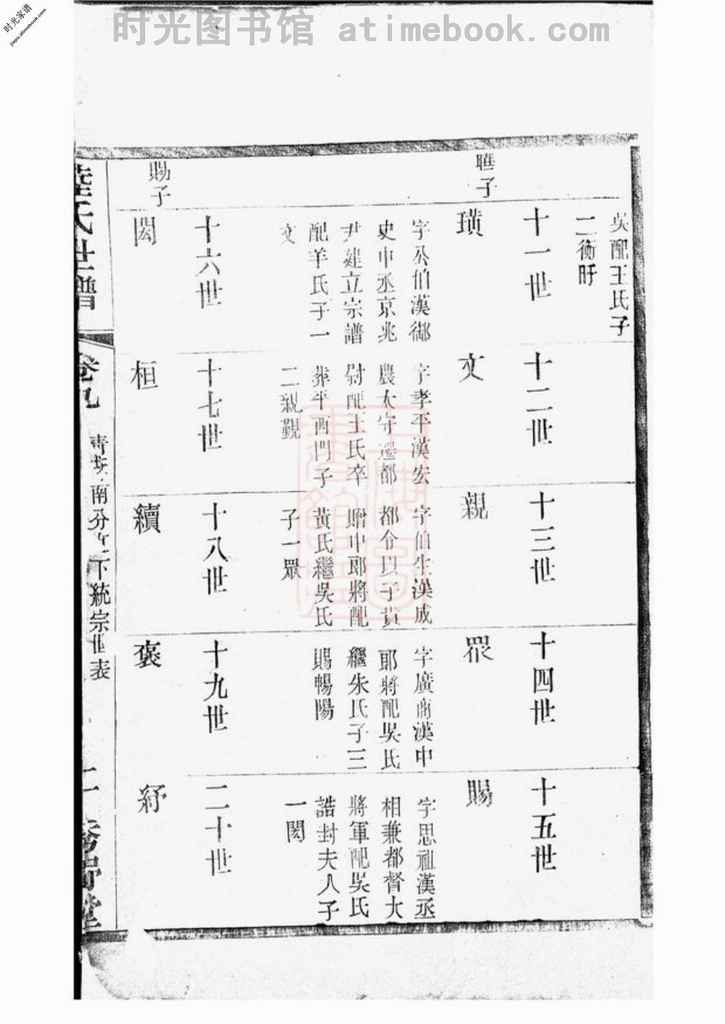 时光图书馆 atimebook.com
时光家谱
吳配王氏子
二衡旰
十一世
十二世
十三世
十四世
十五世
璜
文
親
眾
賜
字公伯漢御
史中丞京兆
尹建立宗譜
配羊氏子一
文
字孝平漢宏
農太守遷都
尉配王氏卒
葬平西門子
二親覲
字伯生漢成
都令以子貴
贈中郎將配
黃氏繼吳氏
子一眾
字廣商漢中
郎將配吳氏
繼朱氏子三
賜暢陽
字思祖漢丞
相兼都督大
將軍配吳氏
誥封夫人子
一閎
十六世
十七世
十八世
十九世
二十世
賜子
閎
桓
續
褒
紆
陸氏世譜
卷九
南分
下統宗世表
二